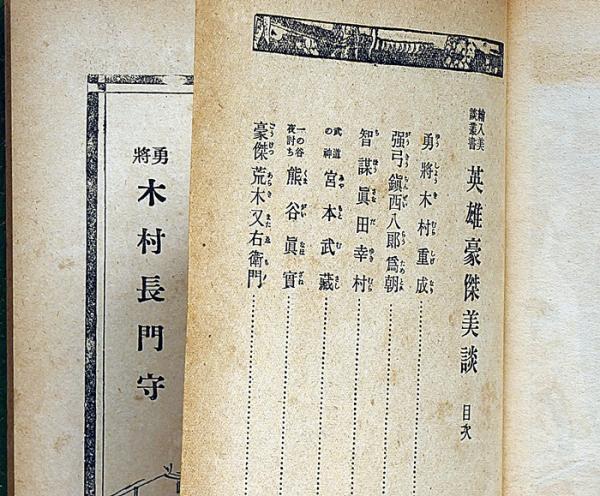 繪入美談叢書 英雄豪傑美談 目次
勇將木村重成
强弓鎭西八郞爲朝
智謀眞田幸村
武道の神 宮本武藏
一の谷夜討ち 熊谷眞實
豪傑荒木又右衞門
勇將 木村長門守